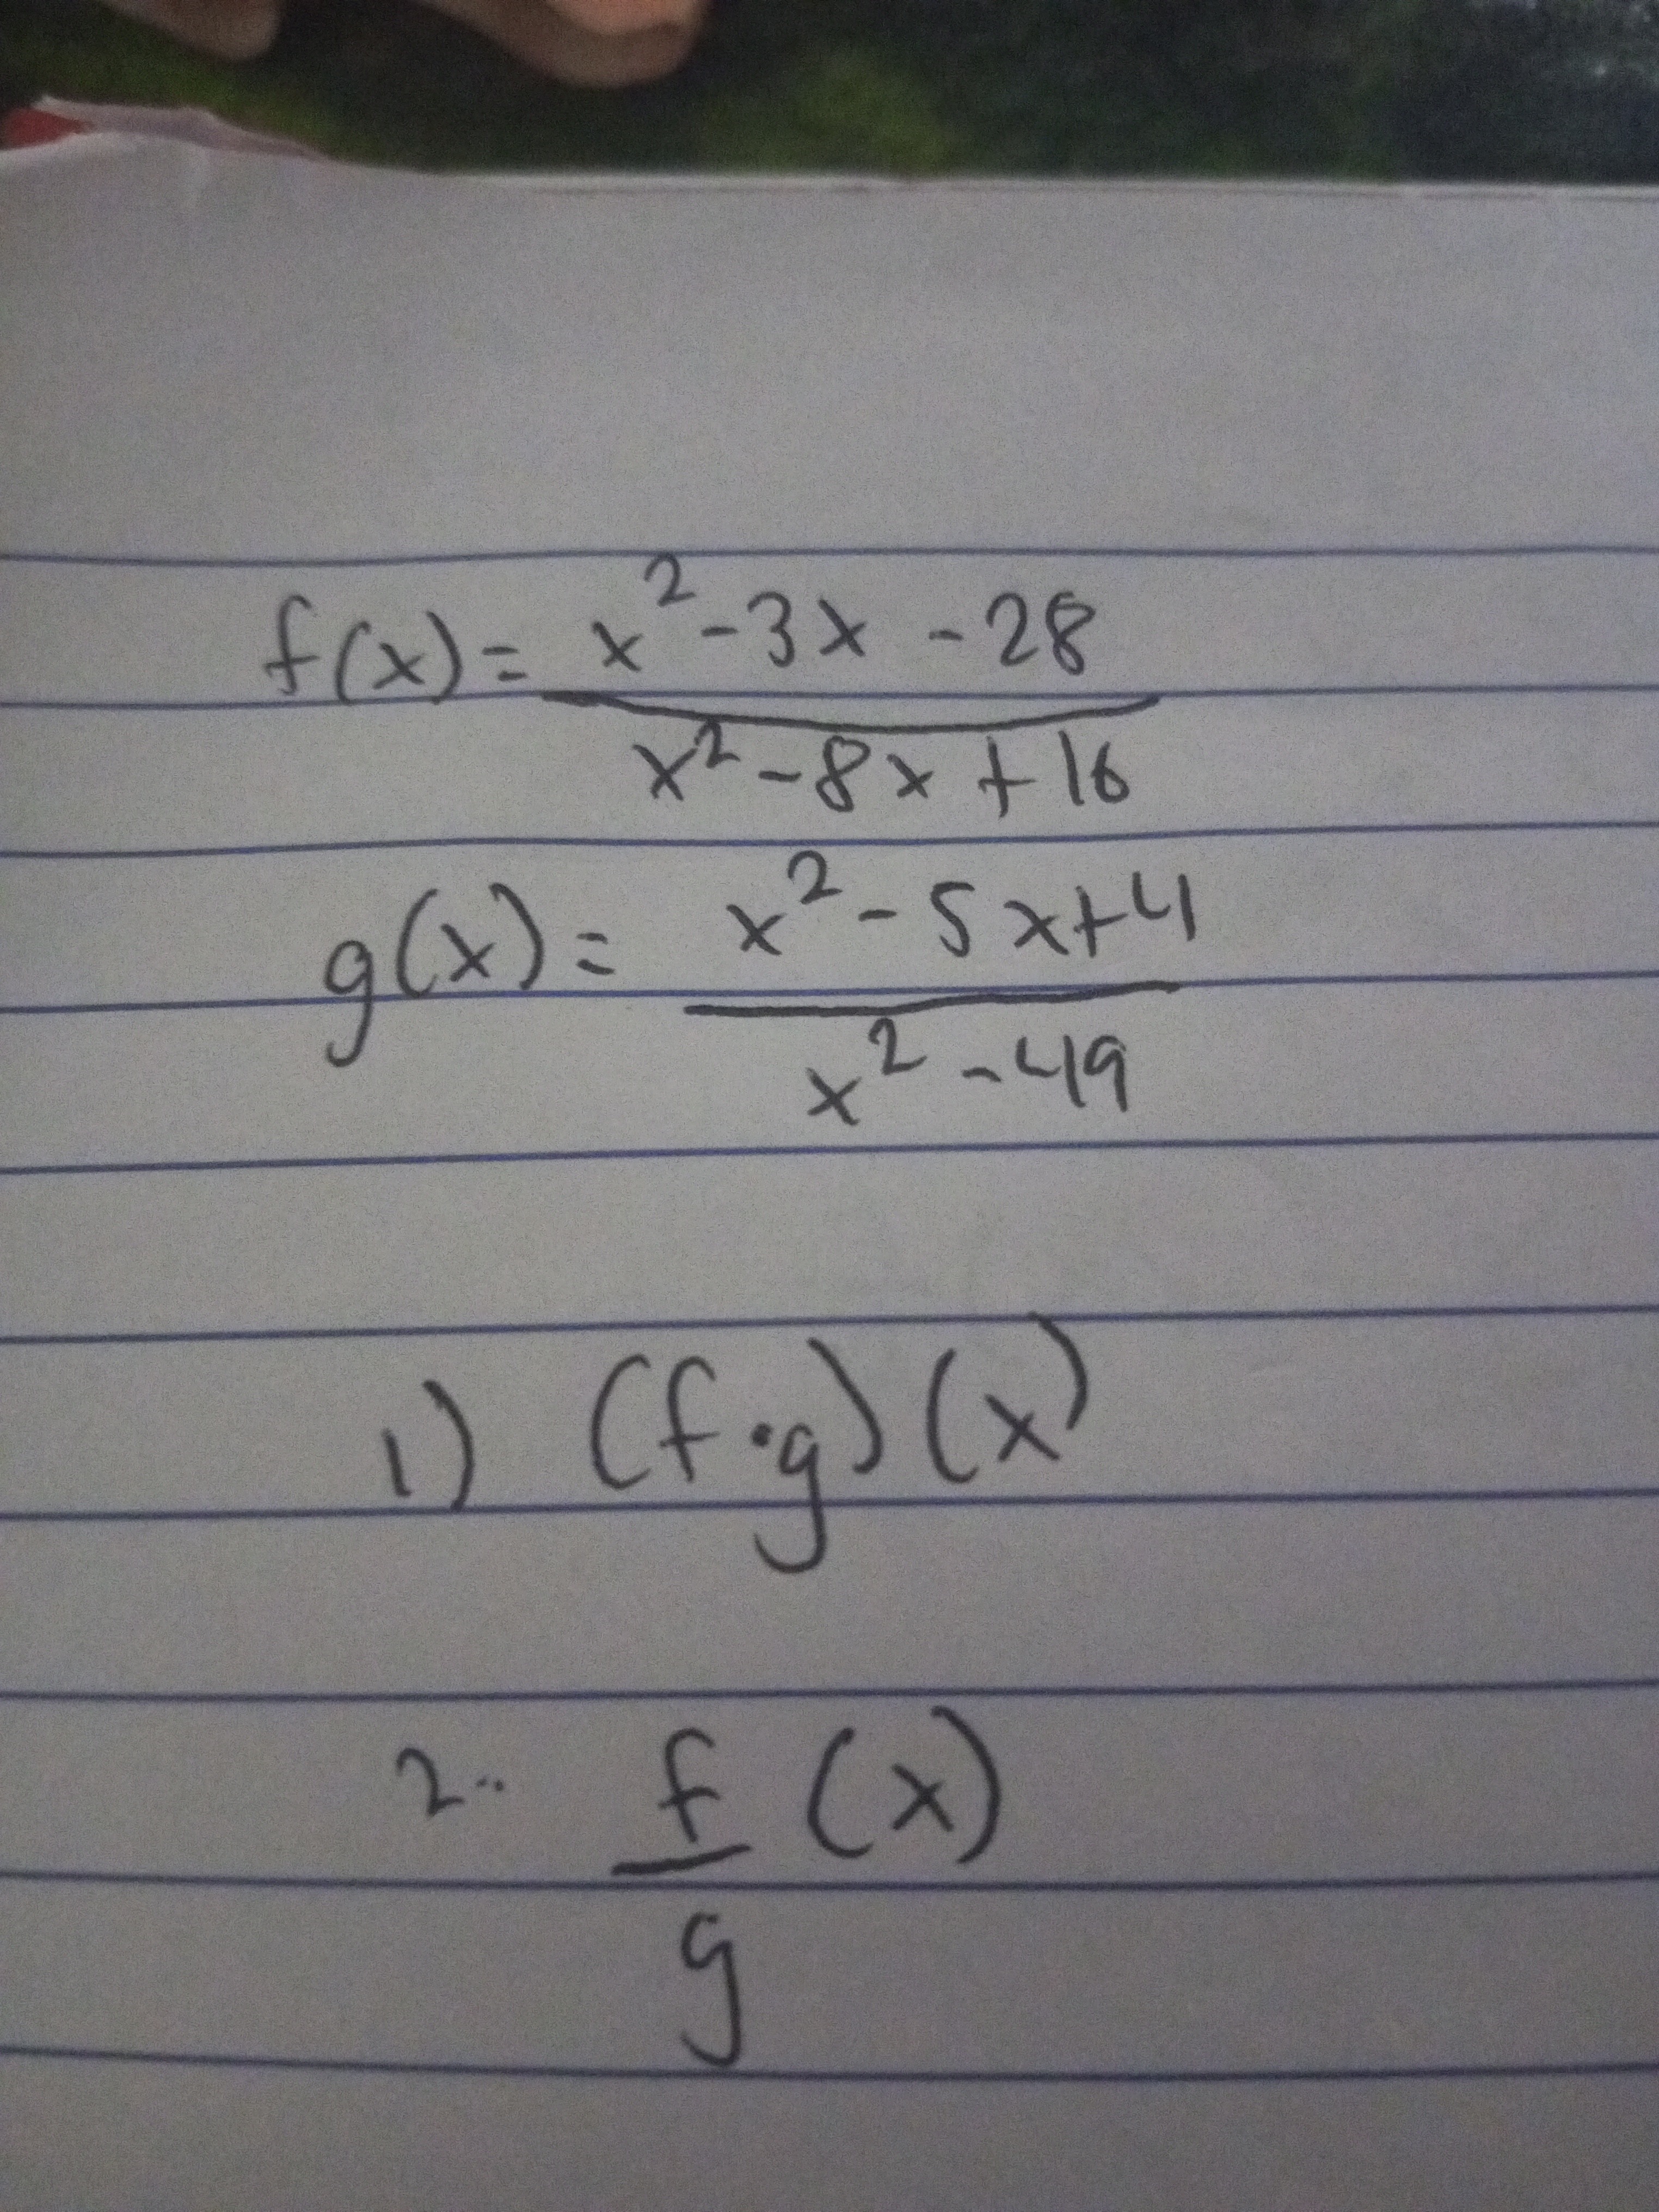 f(x) = x² - 3x - 28
x² - 8x + 16
g(x) = x² - 5x + 4
x² - 49
1) (f·g)(x)
2.. f (x)
g